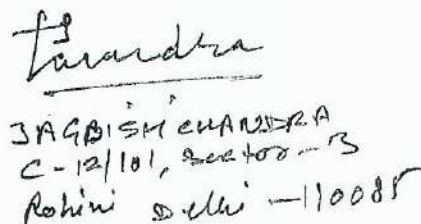 JAGDISH CHANDRA
C-12/101, Sector-3
Rohini Delhi-110085